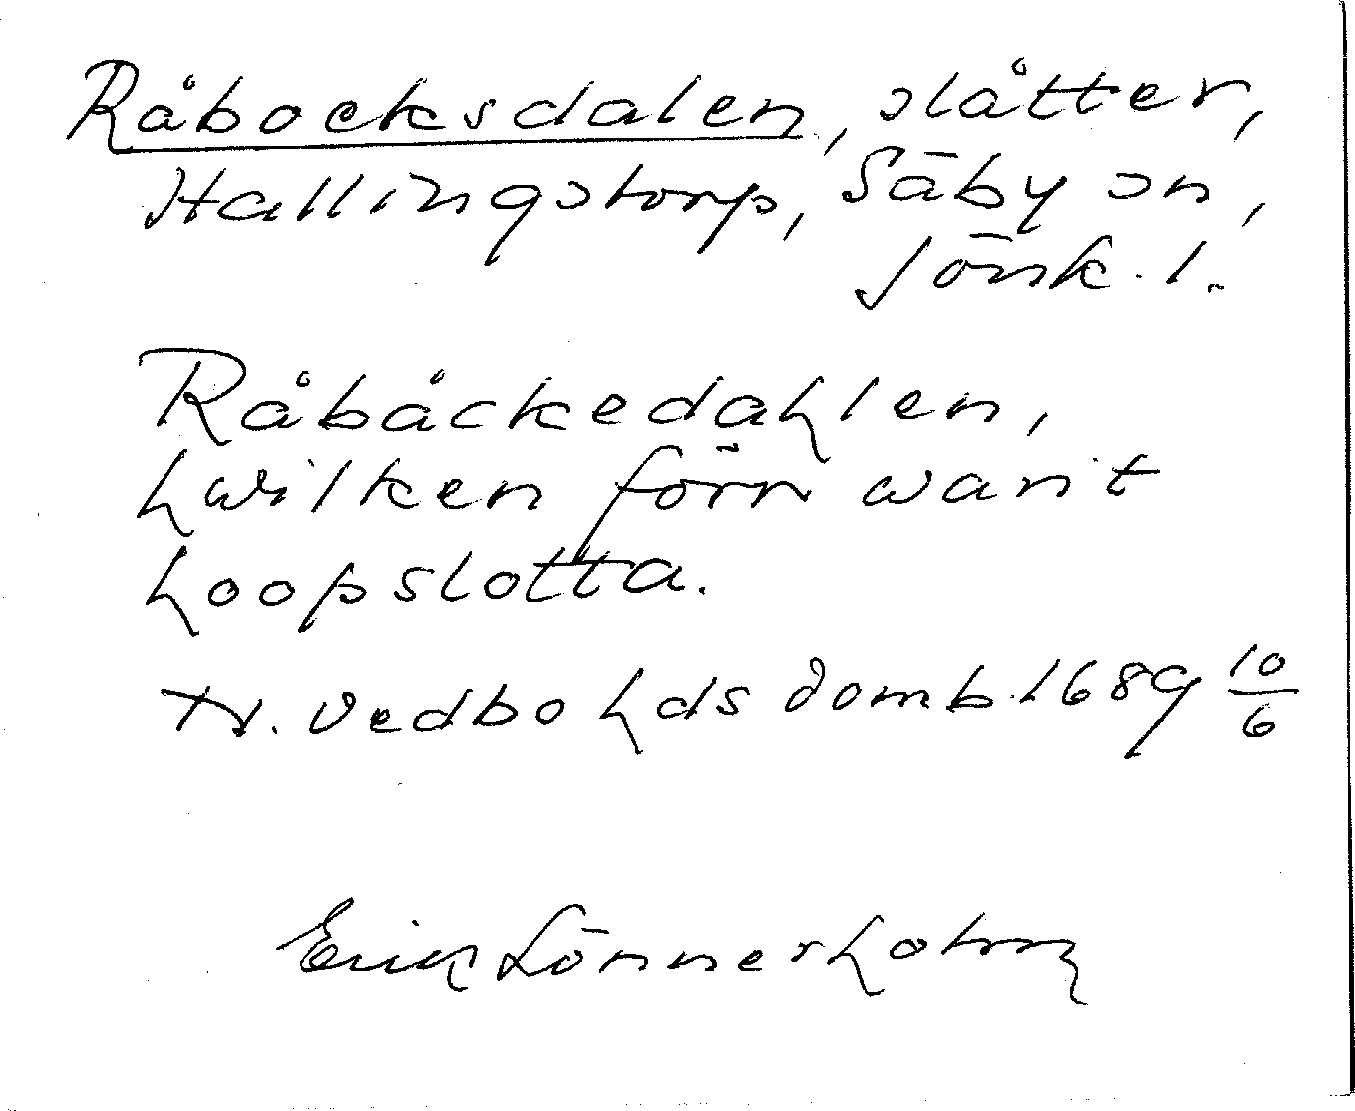 Råbocksdalen, slåtter,
Hallingstorp, Säby sn,
Jönk. l.
Råbåckedahlen,
hwilken förr warit
hoopslotta.
N. Vedbo hds domb. 1689 10/6
Erik Lönnerholm